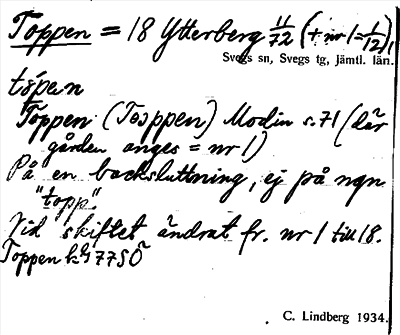 Toppen = 18 Ytterberg 11/72 (+ nr 1 = 1/12),
Svegs sn, Svegs tg, Jämtl. län.
tópen
Toppen (Tosppen) Modin s. 71 (där
gården anges = nr 1)
På en backsluttning, ej på ngn
"topp".
Vid skiftet ändrat fr. nr 1 till 18.
Toppen 77SÖ
C. Lindberg 1934.